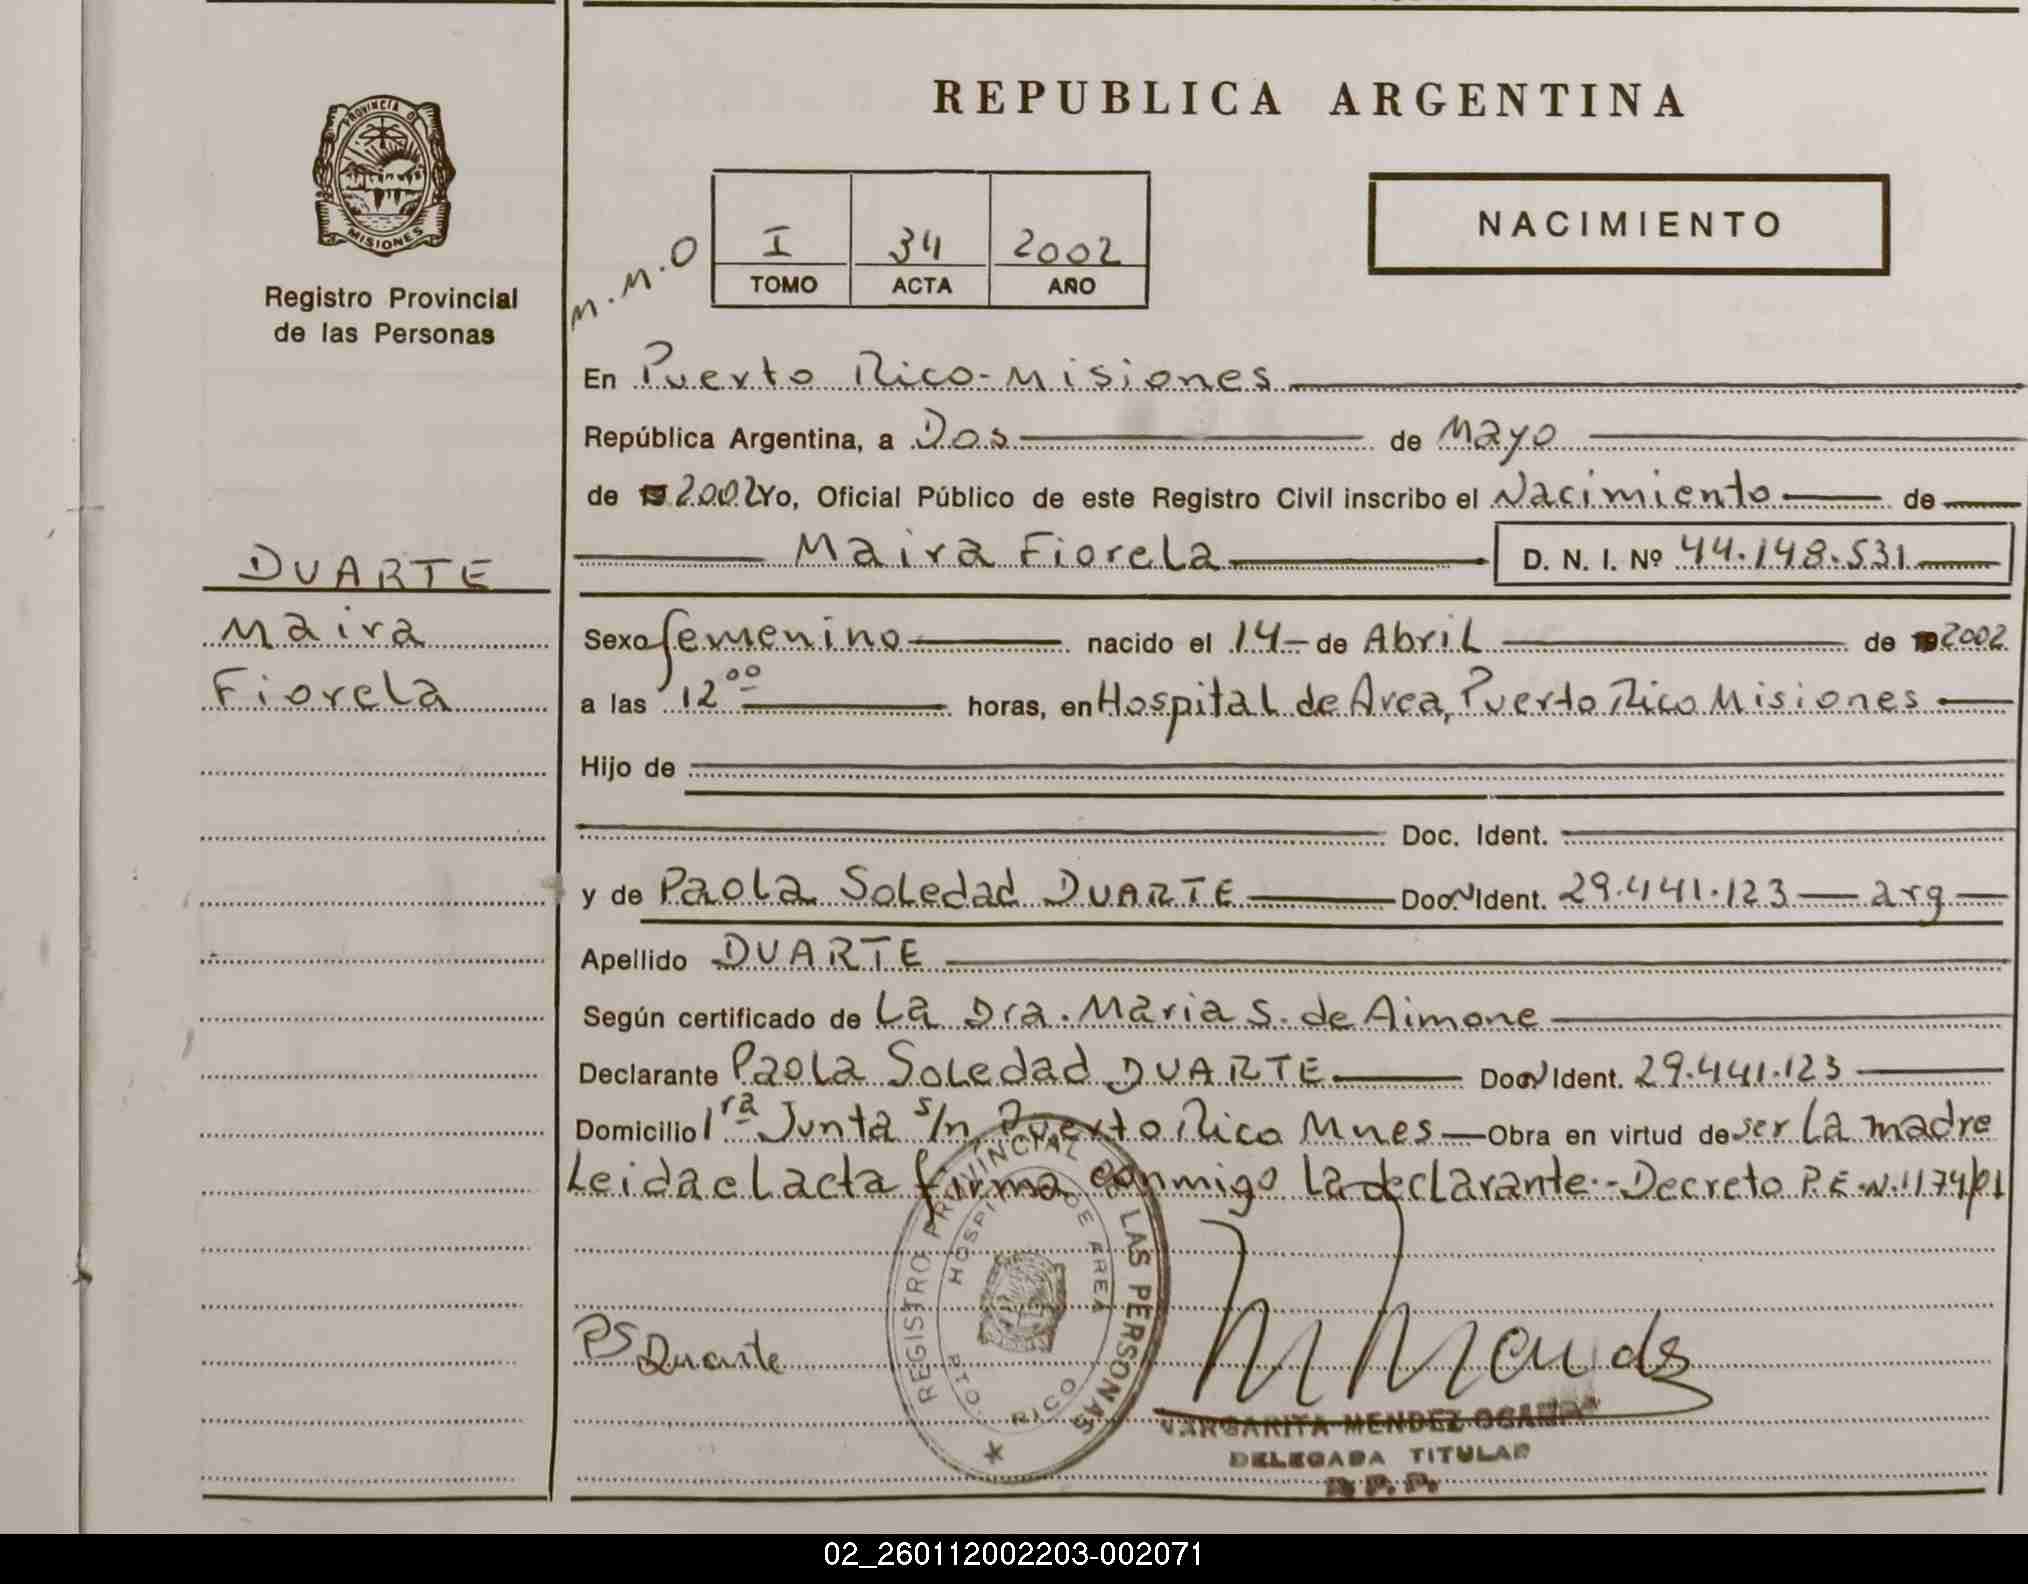 REPUBLICA ARGENTINA
PROVINCIA D
MISIONES
Registro Provincial
de las Personas
M.M.O
I 34 2002
TOMO ACTA AÑO
NACIMIENTO
En Puerto Rico-Misiones
República Argentina, a Dos de Mayo
de 19 2002 Yo, Oficial Público de este Registro Civil inscribo el Nacimiento de
Maira Fiorela D. N. I. Nº 44.148.531
DUARTE
Maira
Fiorela
Sexo femenino nacido el 14 de Abril de 19 2002
a las 12 00 horas, en Hospital de Area, Puerto Rico Misiones
Hijo de
Doc. Ident.
y de Paola Soledad DUARTE Doc. Ident. 29.441.123 — arg
Apellido DUARTE
Según certificado de La Dra. Maria S. de Aimone
Declarante Paola Soledad DUARTE Doc. Ident. 29.441.123
Domicilio 1ra Junta s/n Puerto Rico Mnes — Obra en virtud de ser La madre
Leida el acta firma conmigo La declarante.- Decreto P.E.N. 1174/01
REGISTRO PROVINCIAL DE LAS PERSONAS
HOSPITAL DE AREA
PTO. RICO
PS Duarte
MARGARITA MENDEZ OCAMPO
DELEGADA TITULAR
R. P. P.
02_260112002203-002071